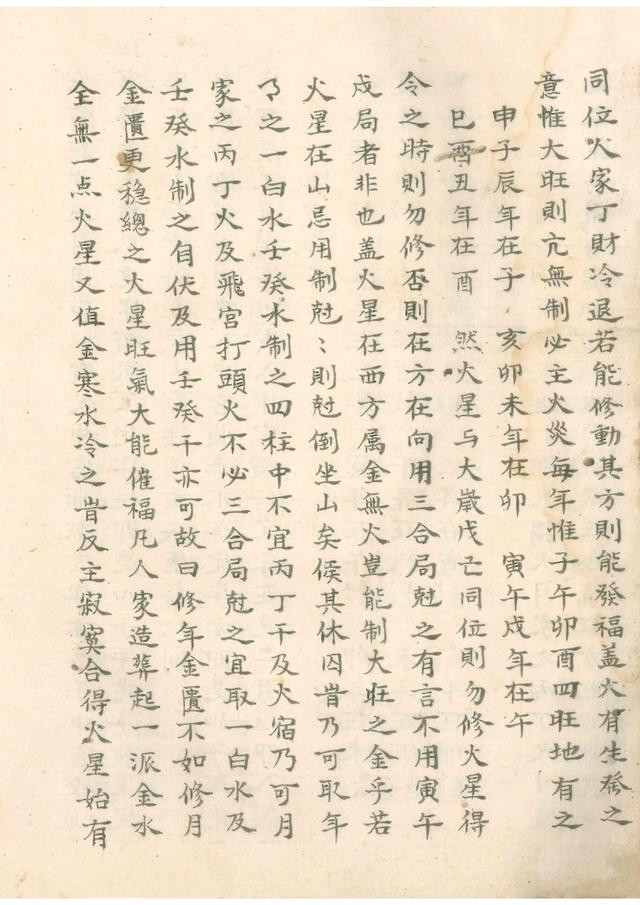 同位火家丁財冷退若能修動其方則能發福盖火有生發之
意惟大旺則亢無制必主火災每年惟子午卯酉四旺地有之
申子辰年在子　亥卯未年在卯　寅午戌年在午
巳酉丑年在酉　然火星与大歲戊亡同位則勿修火星得
令之時則勿修否則在方在向用三合局尅之有言不用寅午
戌局者非也盖火星在西方属金無火豈能制大旺之金乎若
火星在山忌用制尅〻則尅倒坐山矣俟其休囚旹乃可取年
月之一白水壬癸水制之四柱中不宜丙丁干及火宿乃可月
家之丙丁火及飛宮打頭火不必三合局尅之宜取一白水及
壬癸水制之自伏及用壬癸干亦可故曰修年金匱不如修月
金匱更穩總之火星旺氣大能催福凡人家造葬起一派金水
全無一点火星又值金寒水冷之旹反主寂寞合得火星始有